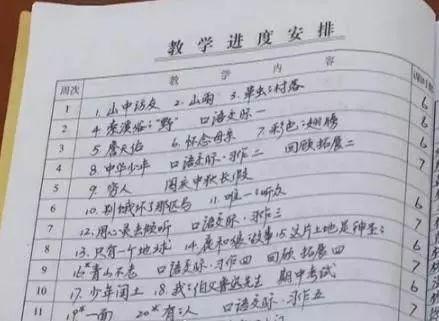 教学进度安排
周次 教学内容
1 1.山中访友 2.山雨 3.草虫的村落 6
2 4.索溪峪的"野" 口语交际一 6
3 5.詹天佑 6.怀念母亲 7.彩色的翅膀 6
4 8.中华少年 口语交际·习作二 回顾拓展二
5 9.穷人 国庆中秋长假
6 10.别饿坏了那匹马 11.唯一的听众
7 12.用心灵去倾听 口语交际·习作三
8 13.只有一个地球 14.鹿和狼的故事 15.这片土地是神圣的
9 16*青山不老 口语交际·习作四 回顾拓展四
10 17.少年闰土 18.我的伯父鲁迅先生 期中考试
11 19*一面 20*有的人 口语交际·习作五